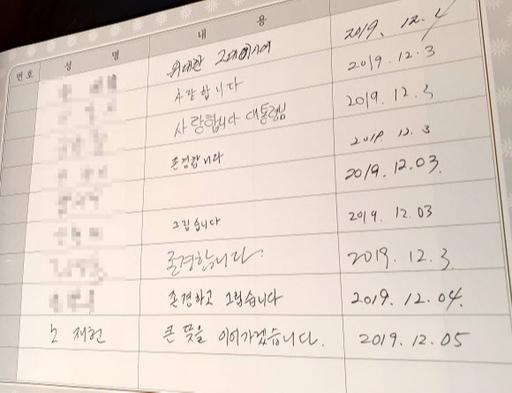 번호 성 명 내 용
위대한 그대여 2019. 12. 4
사랑합니다 2019. 12. 3
사랑합니다 대통령님 2019. 12. 3
존경합니다 2019. 12. 3
2019. 12. 03.
그립습니다 2019. 12. 03
존경합니다. 2019. 12. 3.
존경하고 그립습니다 2019. 12. 04.
노 재헌 큰 뜻을 이어가겠습니다. 2019. 12. 05